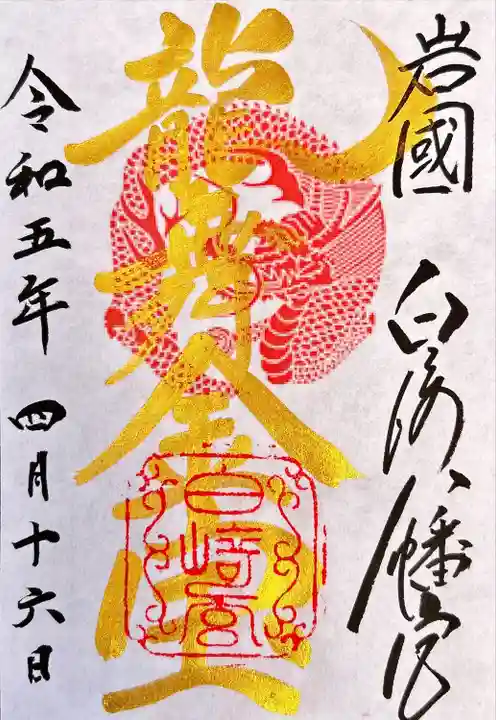 岩國 白崎八幡宮
龍舞金運
白崎宮
令和五年 四月十六日